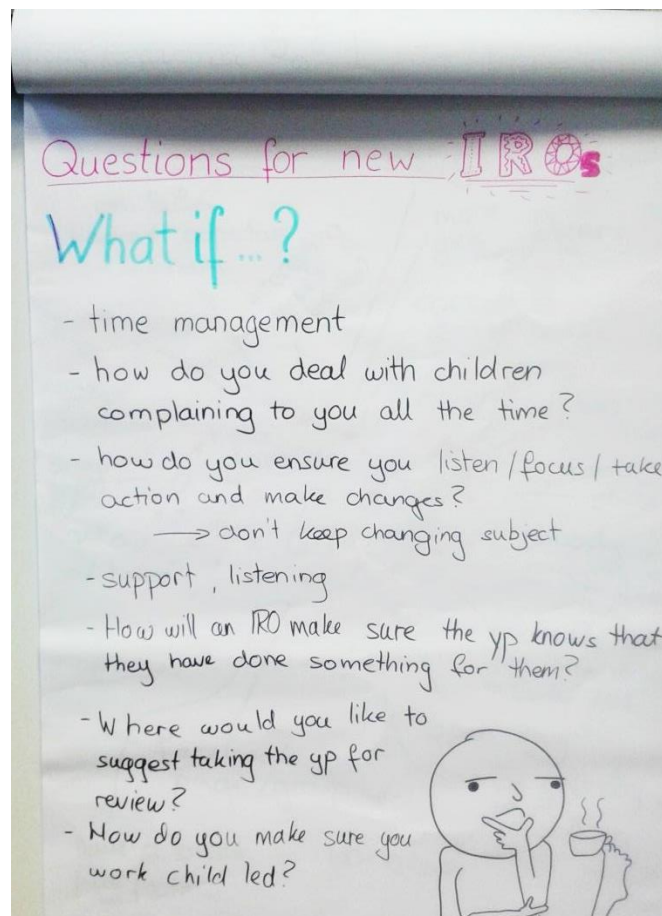 Questions for new IROs
What if...?
- time management
- how do you deal with children
complaining to you all the time?
- how do you ensure you listen/focus/take
action and make changes?
→ don't keep changing subject
- support, listening
- How will an IRO make sure the yp knows that
they have done something for them?
- Where would you like to
suggest taking the yp for
review?
- How do you make sure you
work child led?